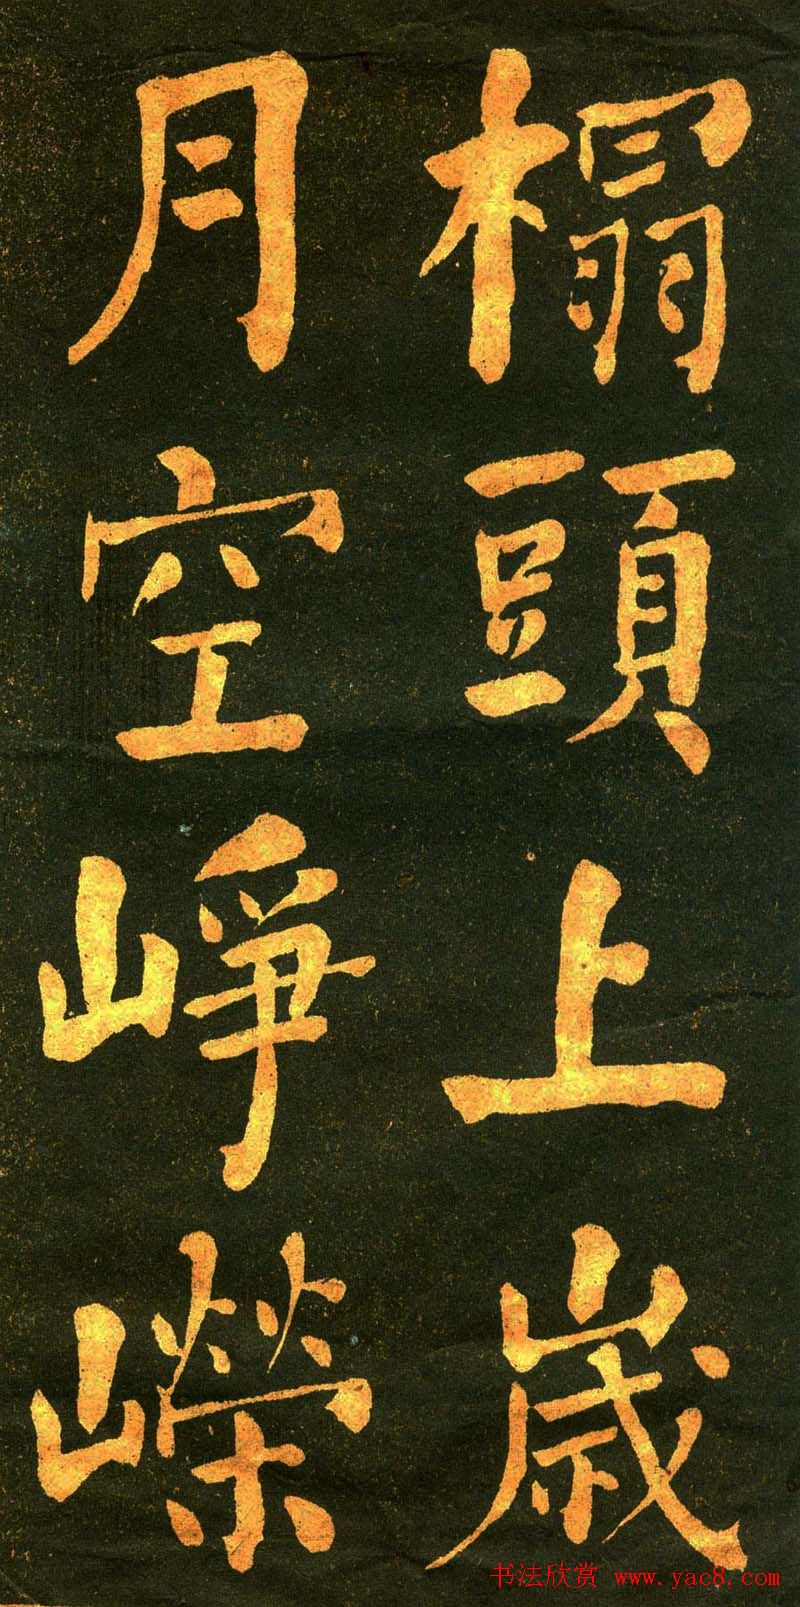 榻頭上歲
月空崢嶸
书法欣赏 www.yac8.com